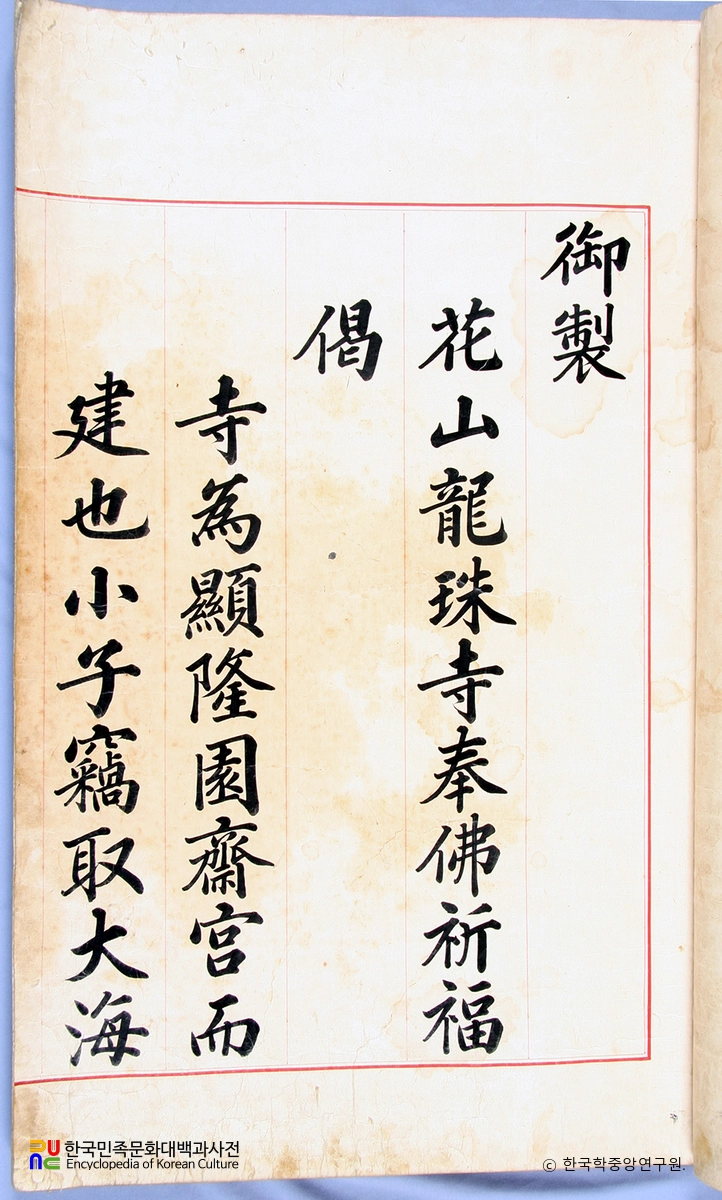 御製
花山龍珠寺奉佛祈福
偈
寺為顯隆園齋宮而
建也小子竊取大海
한국민족문화대백과사전
Encyclopedia of Korean Culture
ⓒ 한국학중앙연구원.